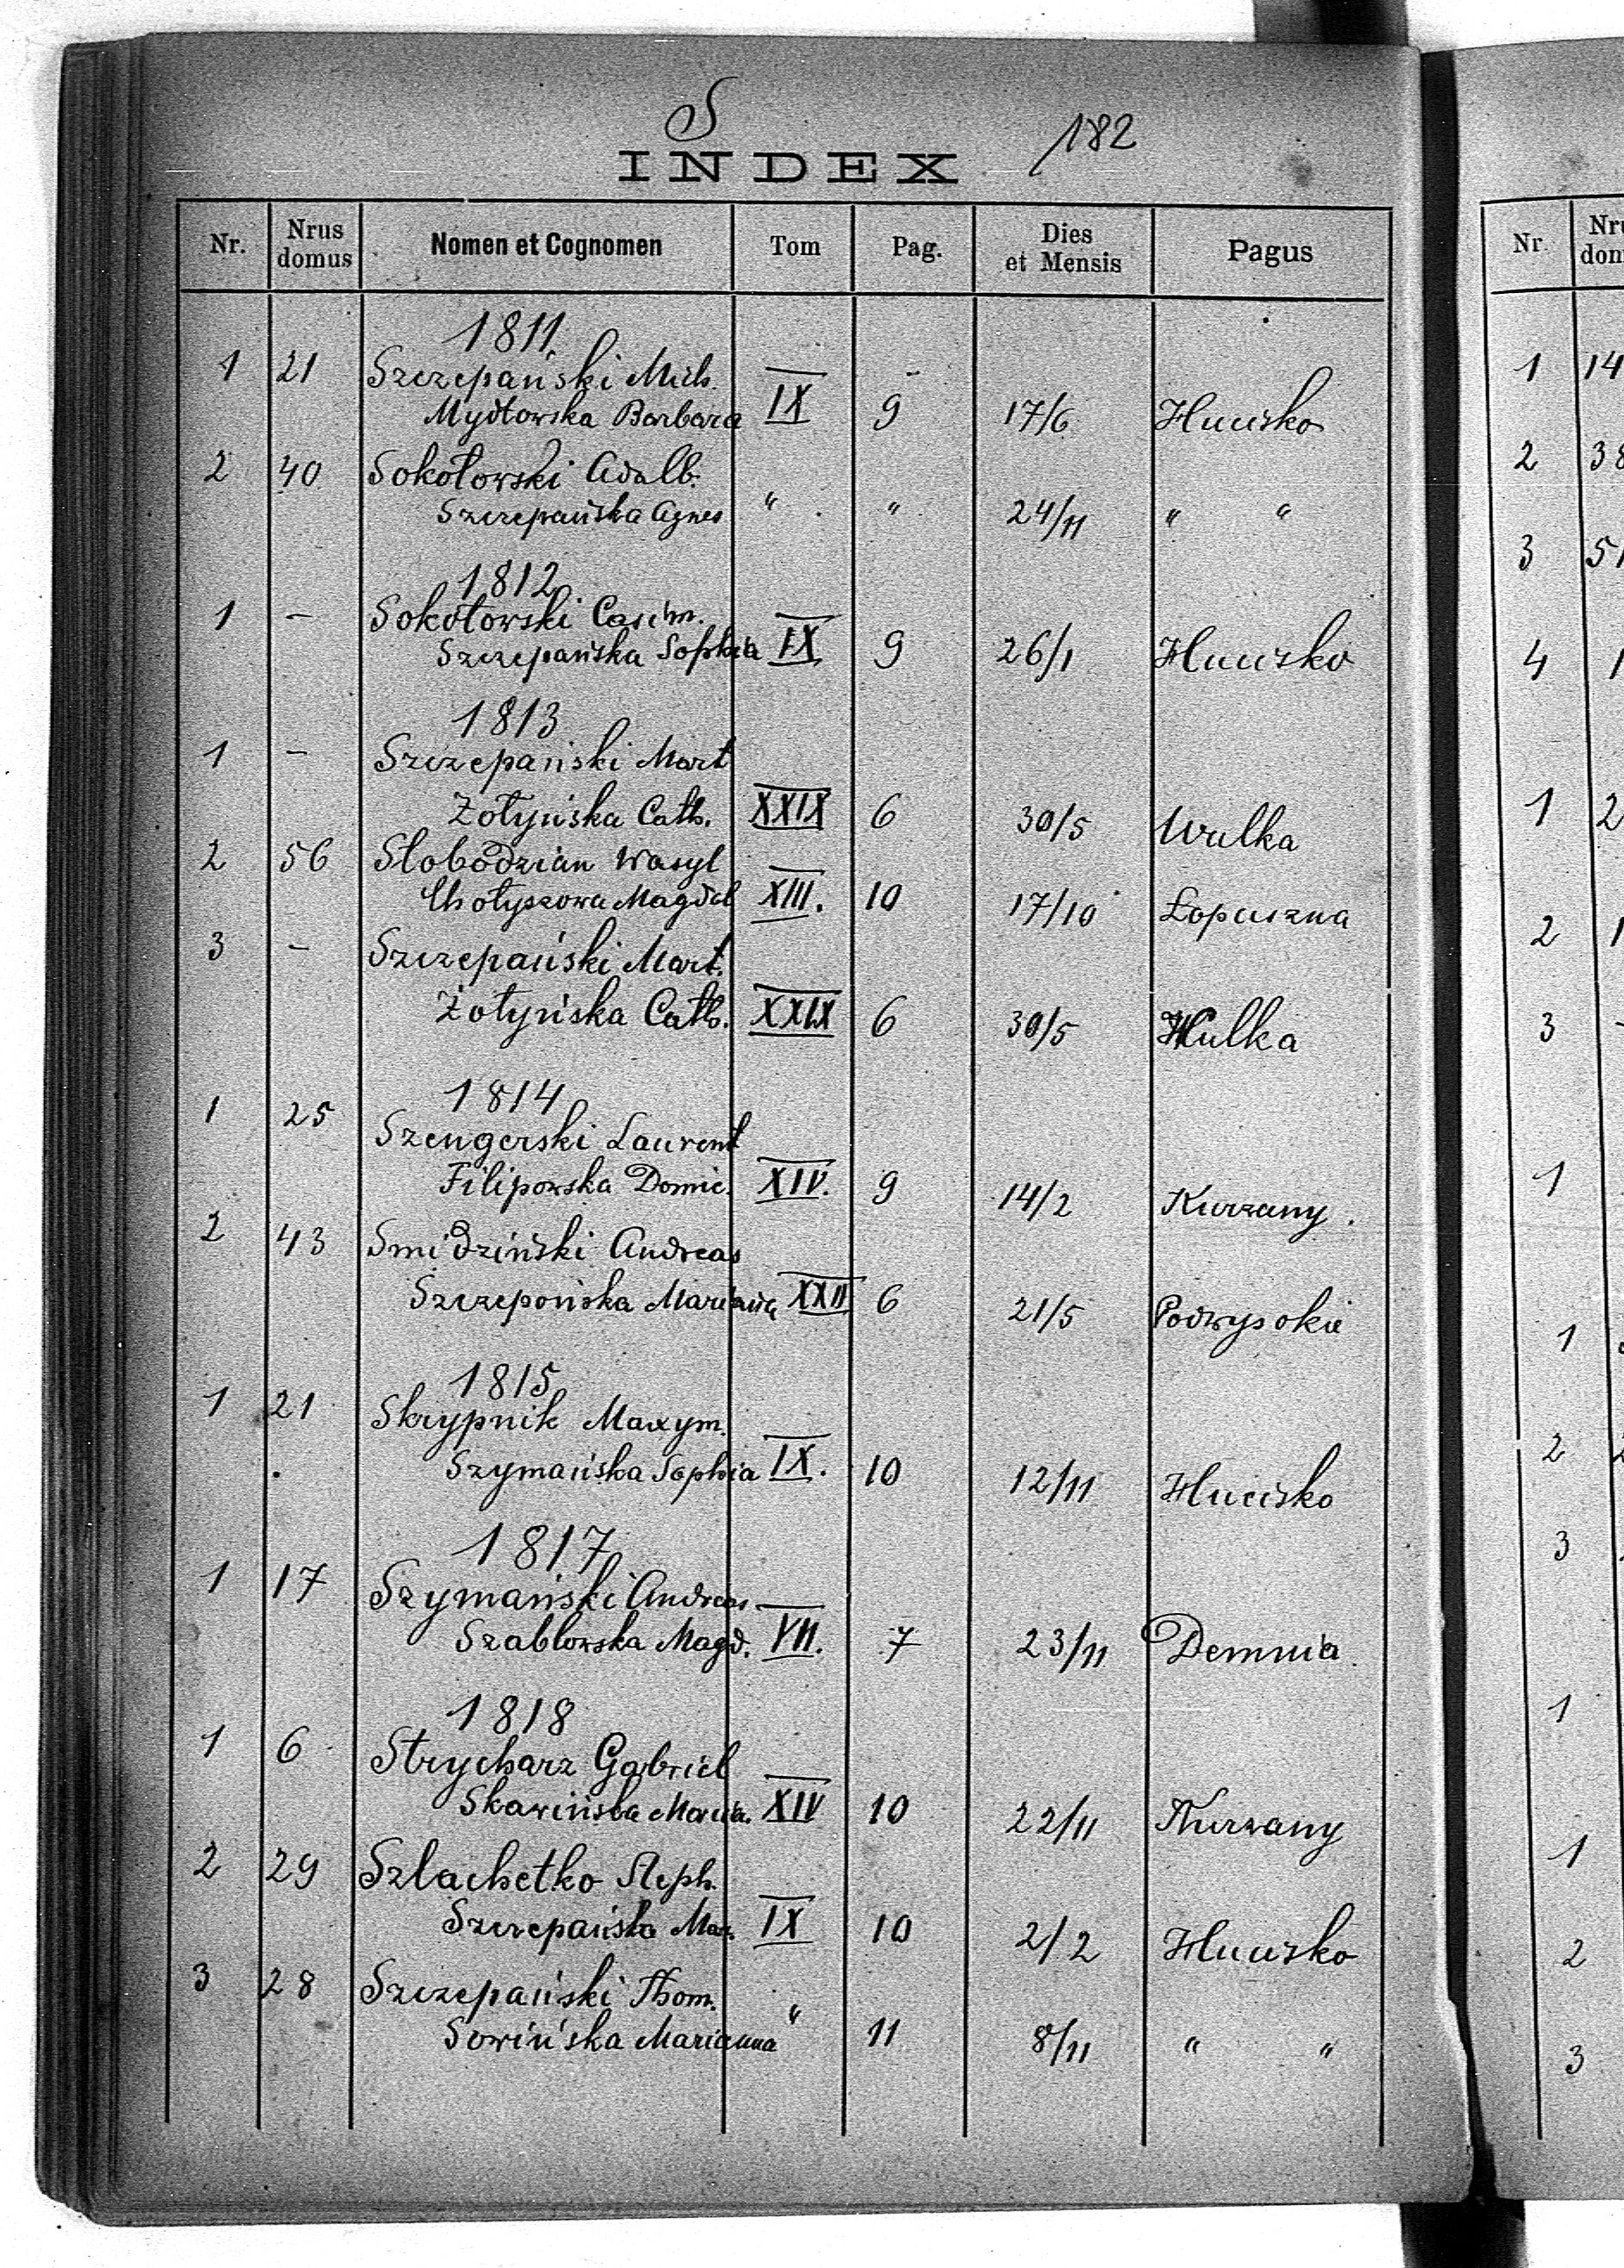 S
182
INDEX
Nr. Nrus domus Nomen et Cognomen Tom Pag. Dies et Mensis Pagus
1811
1 21 Szczepański Mich.
Mydłowska Barbara IX 9 17/6 Hucisko
2 40 Sokołowski Adalb.
Szczepańska Agnes " " 24/11 " "
1812
1 – Sokołowski Casim.
Szczepańska Sophia IX 9 26/1 Hucisko
1813
1 – Szczepański Mart
Żołyńska Cath. XXIX 6 30/5 Wulka
2 56 Słobodzian Wasyl
Chołyszowa Magdal XIII. 10 17/10 Łopuszna
3 – Szczepański Mart.
Żołyńska Cath. XXIX 6 30/5 Wulka
1814
1 25 Szengerski Laurent
Filipowska Domic. XIV. 9 14/2 Kurzany.
2 43 Smidziński Andreas
Szczepońska Marianna XXII 6 21/5 Podwysokie
1815
1 21 Skrypnik Maxym.
Szymańska Sophia IX. 10 12/11 Hucisko
1817
1 17 Szymański Andreas
Szablowska Magd. VII. 7 23/11 Demnia
1818
1 6 Strycharz Gabriel
Skawińska Maria. XIV 10 22/11 Kurzany
2 29 Szlachetko Steph.
Szczepańska Mar. IX 10 2/2 Hucisko
3 28 Szczepański Thom.
Sowińska Marianna " 11 8/11 " "
Nr.
1 14
2 38
3 51
4 1
1 2
2 1
3 -
1
1
2 2
3
1
1
2
3